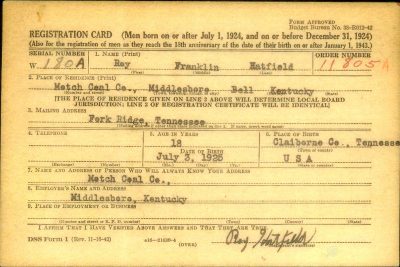 FORM APPROVED
Budget Bureau No. 33-R012-42
REGISTRATION CARD (Men born on or after July 1, 1924, and on or before December 31, 1924)
(Also for the registration of men as they reach the 18th anniversary of the date of their birth on or after January 1, 1943.)
SERIAL NUMBER 1. NAME (Print) ORDER NUMBER
W 180A Roy Franklin Hatfield 11805A
(First) (Middle) (Last)
2. PLACE OF RESIDENCE (Print)
Motch Coal Co., Middlesboro, Bell Kentucky
[THE PLACE OF RESIDENCE GIVEN ON LINE 2 ABOVE WILL DETERMINE LOCAL BOARD
JURISDICTION; LINE 2 OF REGISTRATION CERTIFICATE WILL BE IDENTICAL]
3. MAILING ADDRESS
Fork Ridge, Tennessee
4. TELEPHONE 5. AGE IN YEARS 6. PLACE OF BIRTH
18 Claiborne Co., Tennessee
DATE OF BIRTH
July 3, 1925 U S A
(Exchange) (Number) (Mo.) (Day) (Yr.)
7. NAME AND ADDRESS OF PERSON WHO WILL ALWAYS KNOW YOUR ADDRESS
Motch Coal Co.,
8. EMPLOYER'S NAME AND ADDRESS
Middlesboro, Kentucky
9. PLACE OF EMPLOYMENT OR BUSINESS
(Number and street or R. F. D. number) (Town) (County) (State)
I AFFIRM THAT I HAVE VERIFIED ABOVE ANSWERS AND THAT THEY ARE TRUE
DSS Form 1 (Rev. 11-16-42) (OVER) Roy Hatfield